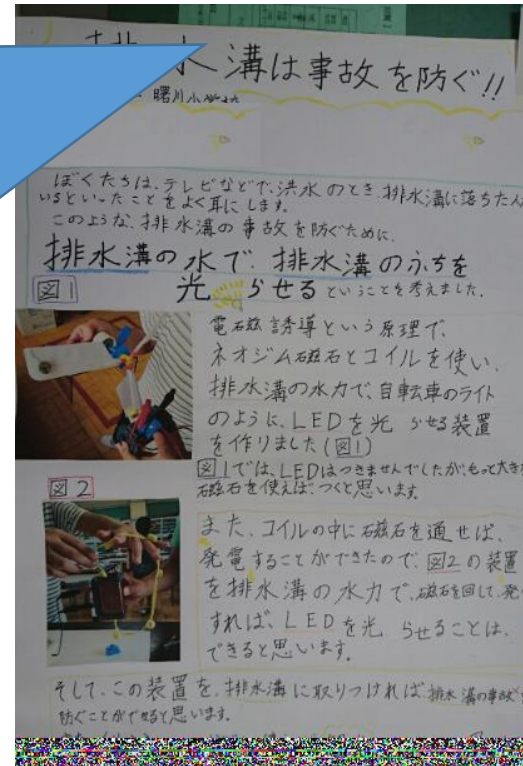 水溝は事故を防ぐ!!
曙川小学校
ぼくたちは、テレビなどで、洪水のとき、排水溝に落ちた人
いるといったことをよく耳にします。
このような、排水溝の事故を防ぐために、
排水溝の水で、排水溝のふちを
光らせるということを考えました。
図1
電磁誘導という原理で、
ネオジム磁石とコイルを使い、
排水溝の水力で、自転車のライト
のように、LEDを光らせる装置
を作りました(図1)
図1では、LEDはつきませんでしたが、もっと大き
磁石を使えば、つくと思います。
図2
また、コイルの中に磁石を通せば、
発電することができたので、図2の装置
を排水溝の水力で、磁石を回して、発
すれば、LEDを光らせることは、
できると思います。
そして、この装置を、排水溝に取りつければ、排水溝の事故
防ぐことができると思います。